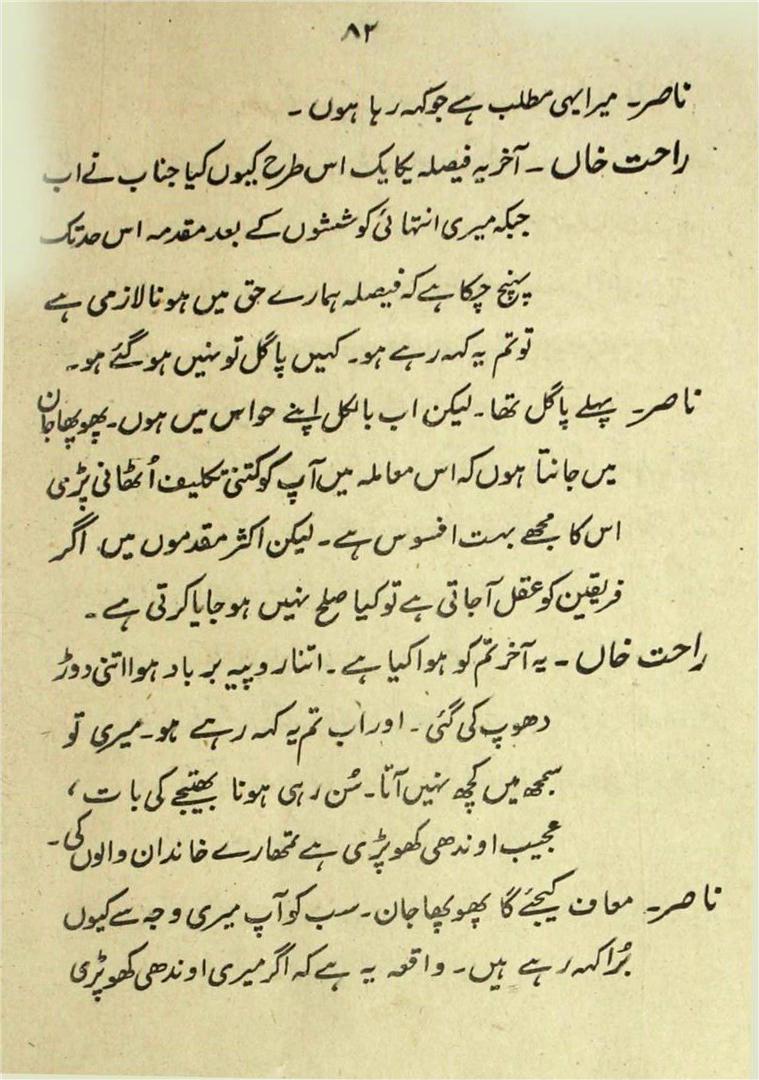 ۸۲
ناصر۔ میرا یہی مطلب ہے جو کہہ رہا ہوں ۔
راحت خاں ۔ آخر یہ فیصلہ یکایک اس طرح کیوں کیا جناب نے اب
جبکہ میری انتہائی کوششوں کے بعد مقدمہ اس حد تک
پہنچ چکا ہے کہ فیصلہ ہمارے حق میں ہونا لازمی ہے
تو تم یہ کہہ رہے ہو۔ کہیں پاگل تو نہیں ہو گئے ہو۔
ناصر۔ پہلے پاگل تھا ۔ لیکن اب بالکل اپنے حواس میں ہوں۔ پھوپھا جان
میں جانتا ہوں کہ اس معاملہ میں آپ کو کتنی تکلیف اُٹھانی پڑی
اس کا مجھے بہت افسوس ہے ۔ لیکن اکثر مقدموں میں اگر
فریقین کو عقل آ جاتی ہے تو کیا صلح نہیں ہو جایا کرتی ہے ۔
راحت خاں ۔ یہ آخر تم کو ہوا کیا ہے ۔ اتنا روپیہ برباد ہوا اتنی دوڑ
دھوپ کی گئی ۔ اور اب تم یہ کہہ رہے ہو۔ میری تو
سمجھ میں کچھ نہیں آتا۔ سُن رہی ہو نا بھتیجے کی بات ،
عجیب اوندھی کھوپڑی ہے تمھارے خاندان والوں کی ۔
ناصر۔ معاف کیجئے گا پھوپھا جان ۔ سب کو آپ میری وجہ سے کیوں
بُرا کہہ رہے ہیں ۔ واقعہ یہ ہے کہ اگر میری اوندھی کھوپڑی